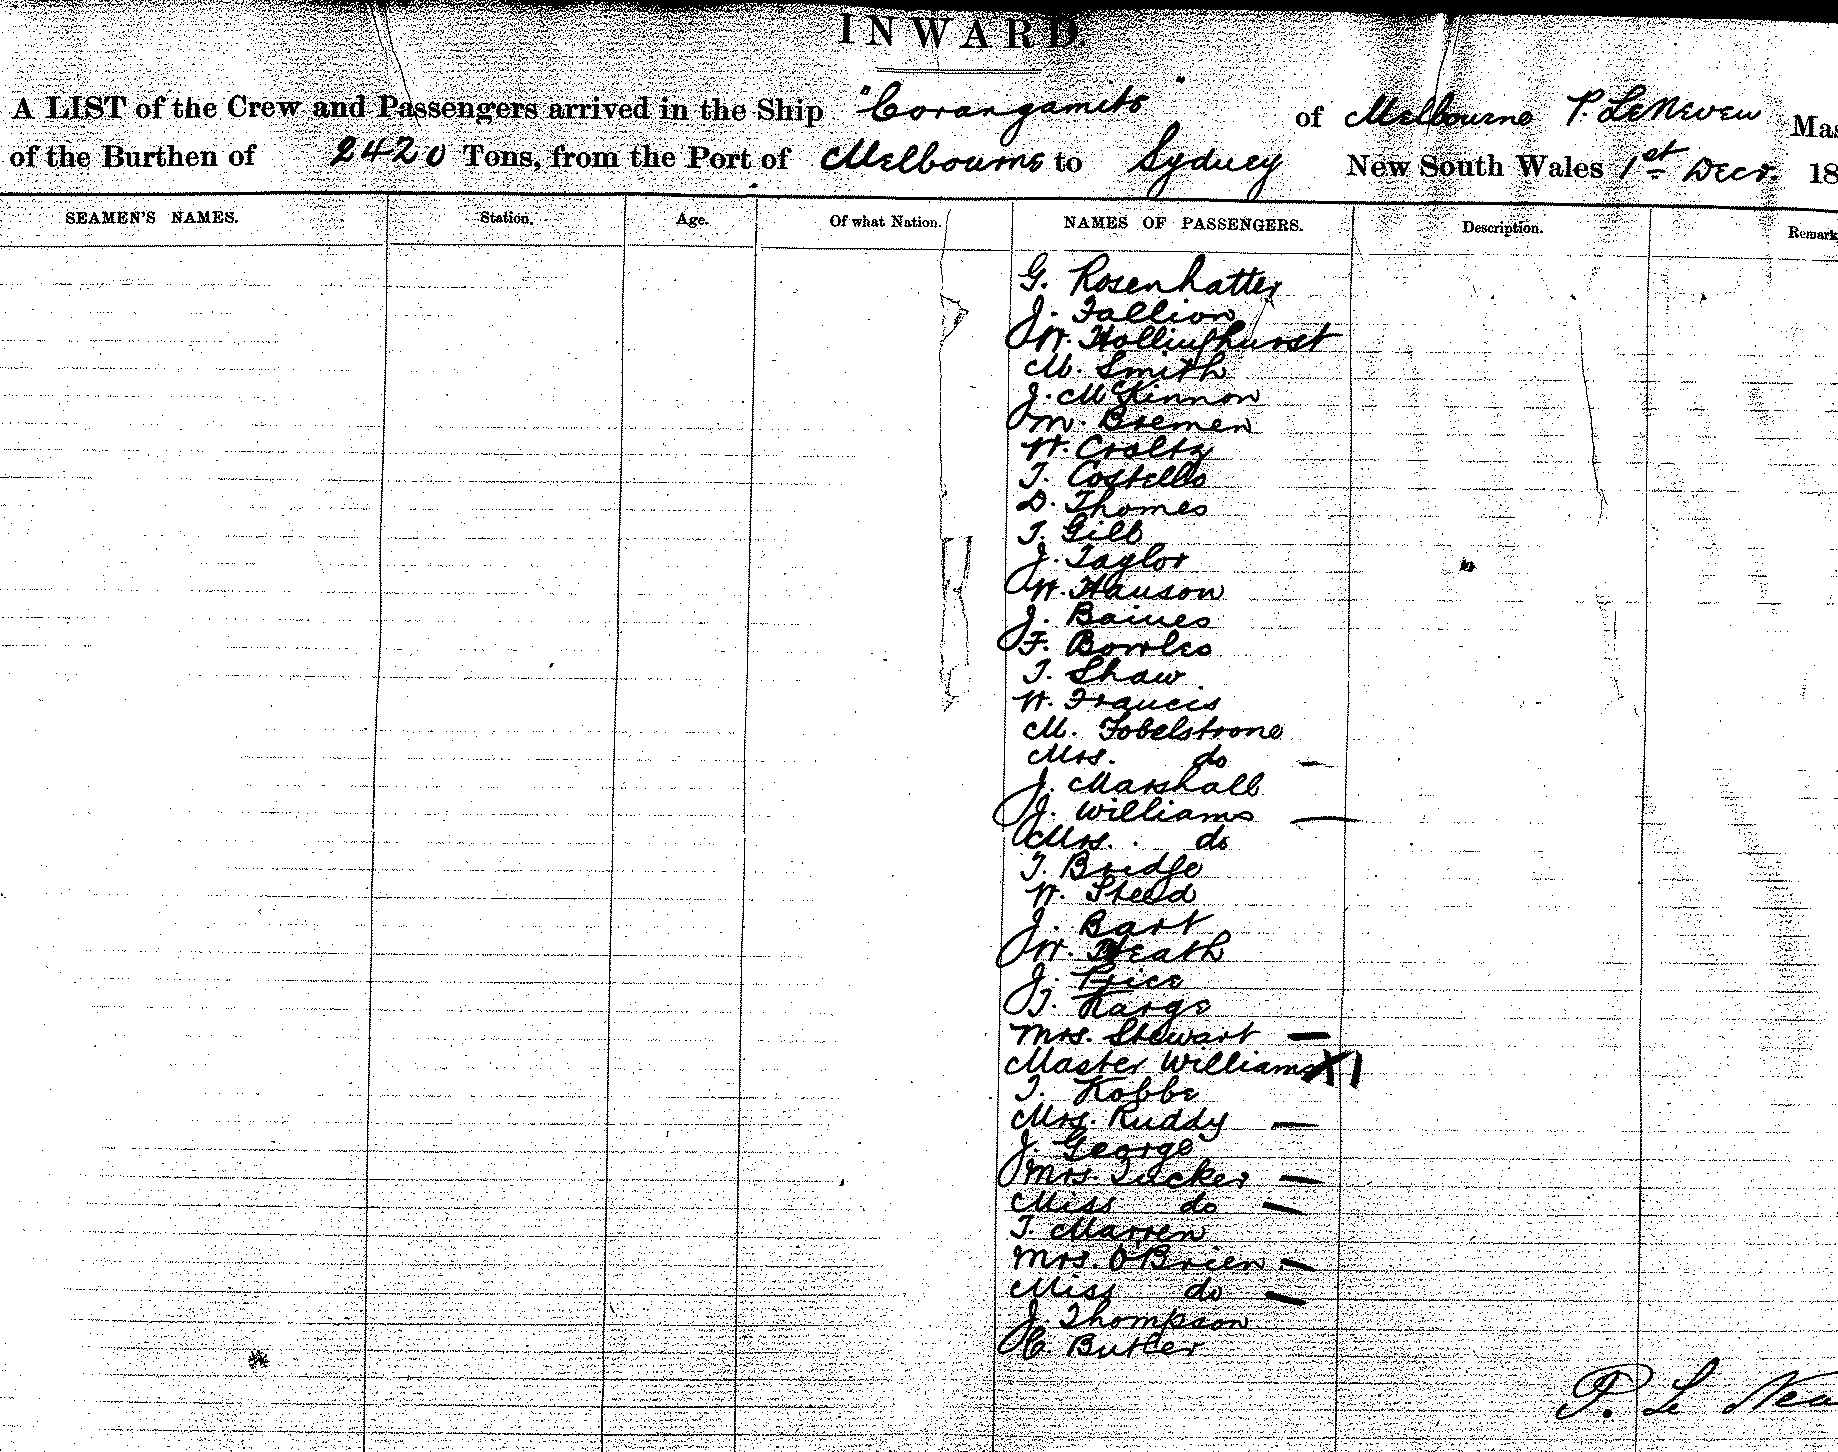 INWARD.
A LIST of the Crew and Passengers arrived in the Ship "Corangamite" of Melbourne P. LeNeveu Mas
of the Burthen of 2420 Tons, from the Port of Melbourne to Sydney New South Wales 1st Decr. 18
SEAMEN'S NAMES. Station. Age. Of what Nation. NAMES OF PASSENGERS. Description. Remark
G. Rosenhatter
J. Fallion
W. Hollinghurst
M. Smith
J. McKinnon
M. Bremen
W. Crolty
T. Costello
D. Thomes
T. Gill
J. Taylor
W. Hanson
J. Baines
F. Bowles
T. Shaw
W. Francis
M. Fobelstrone
Mrs. do —
J. Marshall
J. Williams —
Mrs. do
T. Bridge
W. Steed
J. Bart
W. Heath
J. Price
T. Karge
Mrs. Stewart —
Master Williams X 1
T. Kobbe
Mrs. Ruddy —
J. George
Mrs. Tucker —
Miss do —
T. Marren
Mrs. O'Brien —
Miss do —
J. Thompson
C. Butler
P. Le Neu